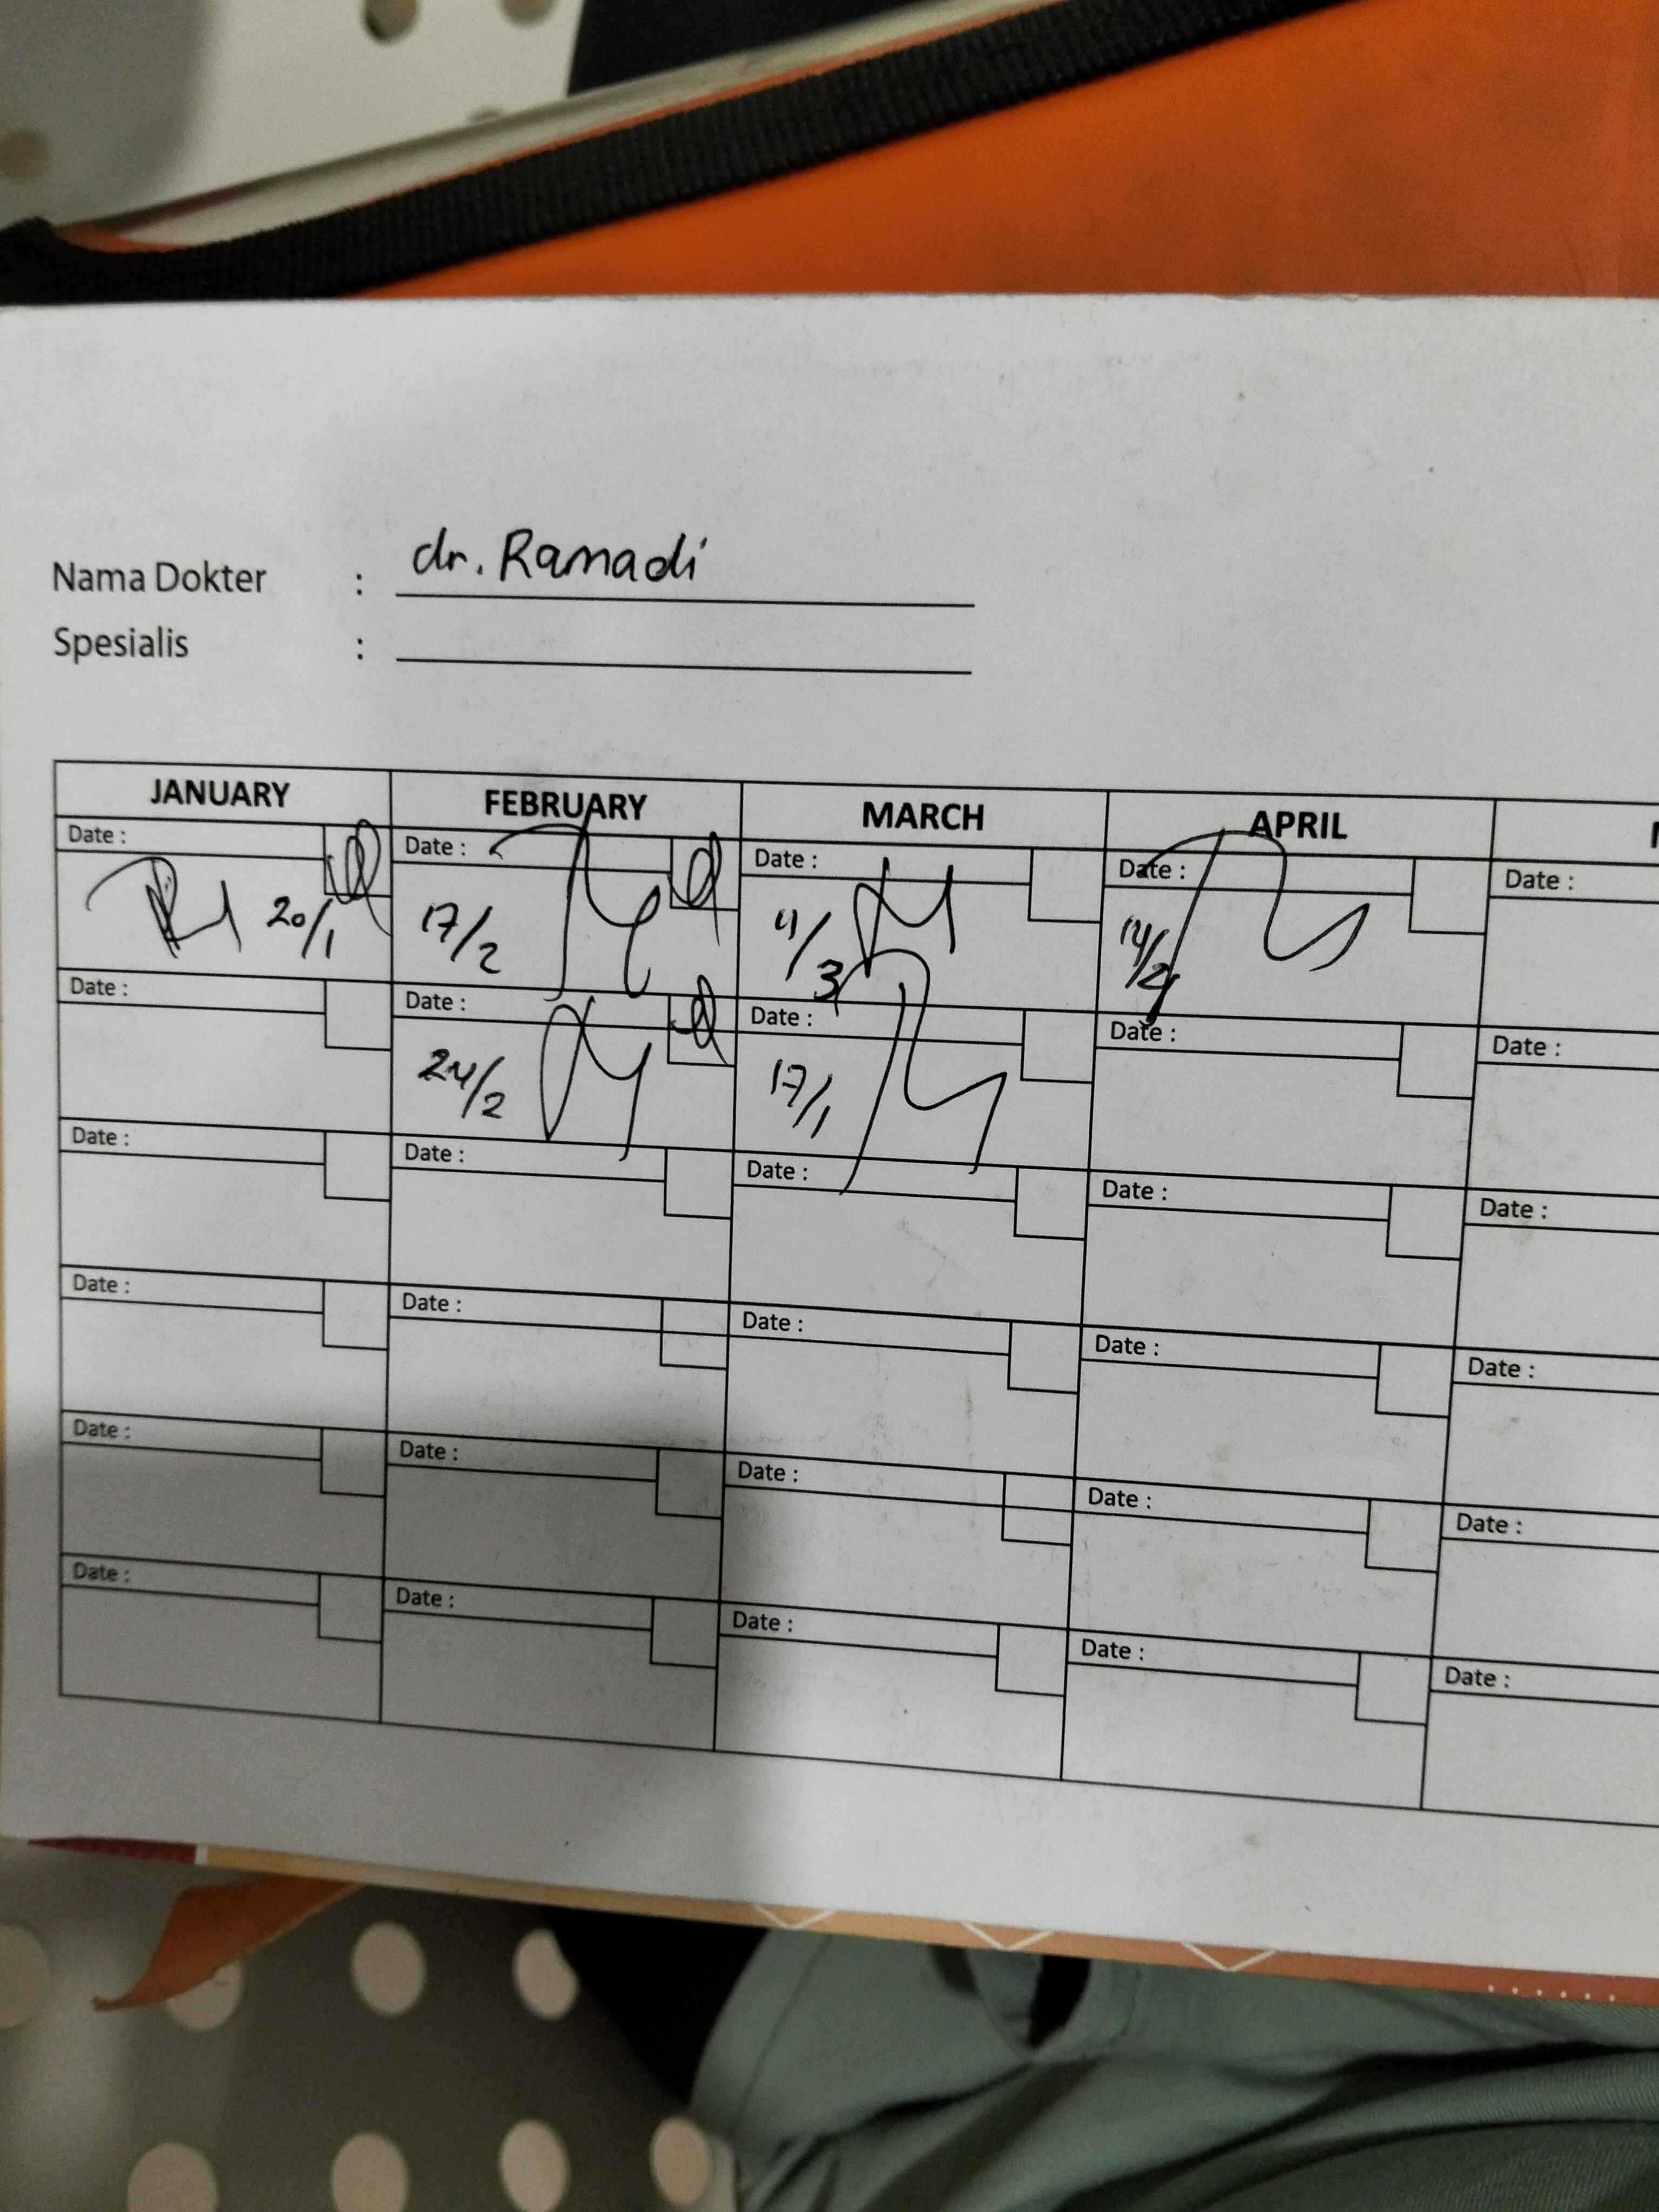 Nama Dokter : dr. Ramadi
Spesialis :
JANUARY FEBRUARY MARCH APRIL
Date : Date : Date : Date : Date :
20/1 17/2 11/3
Date : Date : Date : Date : Date :
24/2 17/1
Date : Date : Date : Date : Date :
Date : Date : Date : Date : Date :
Date : Date : Date : Date : Date :
Date : Date : Date : Date : Date :